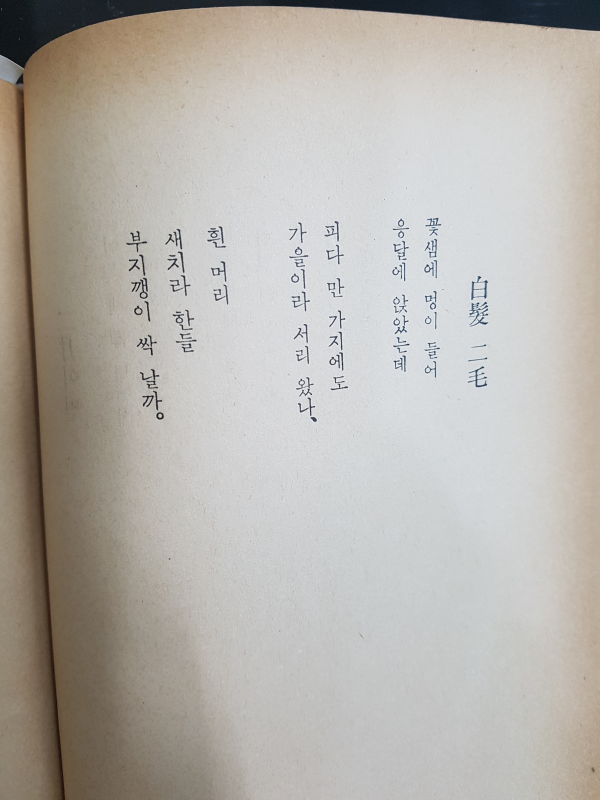 白髮 二毛
꽃샘에 멍이 들어
응달에 앉았는데
피다 만 가지에도
가을이라 서리 왔나、
흰 머리
새치라 한들
부지깽이 싹 날까。